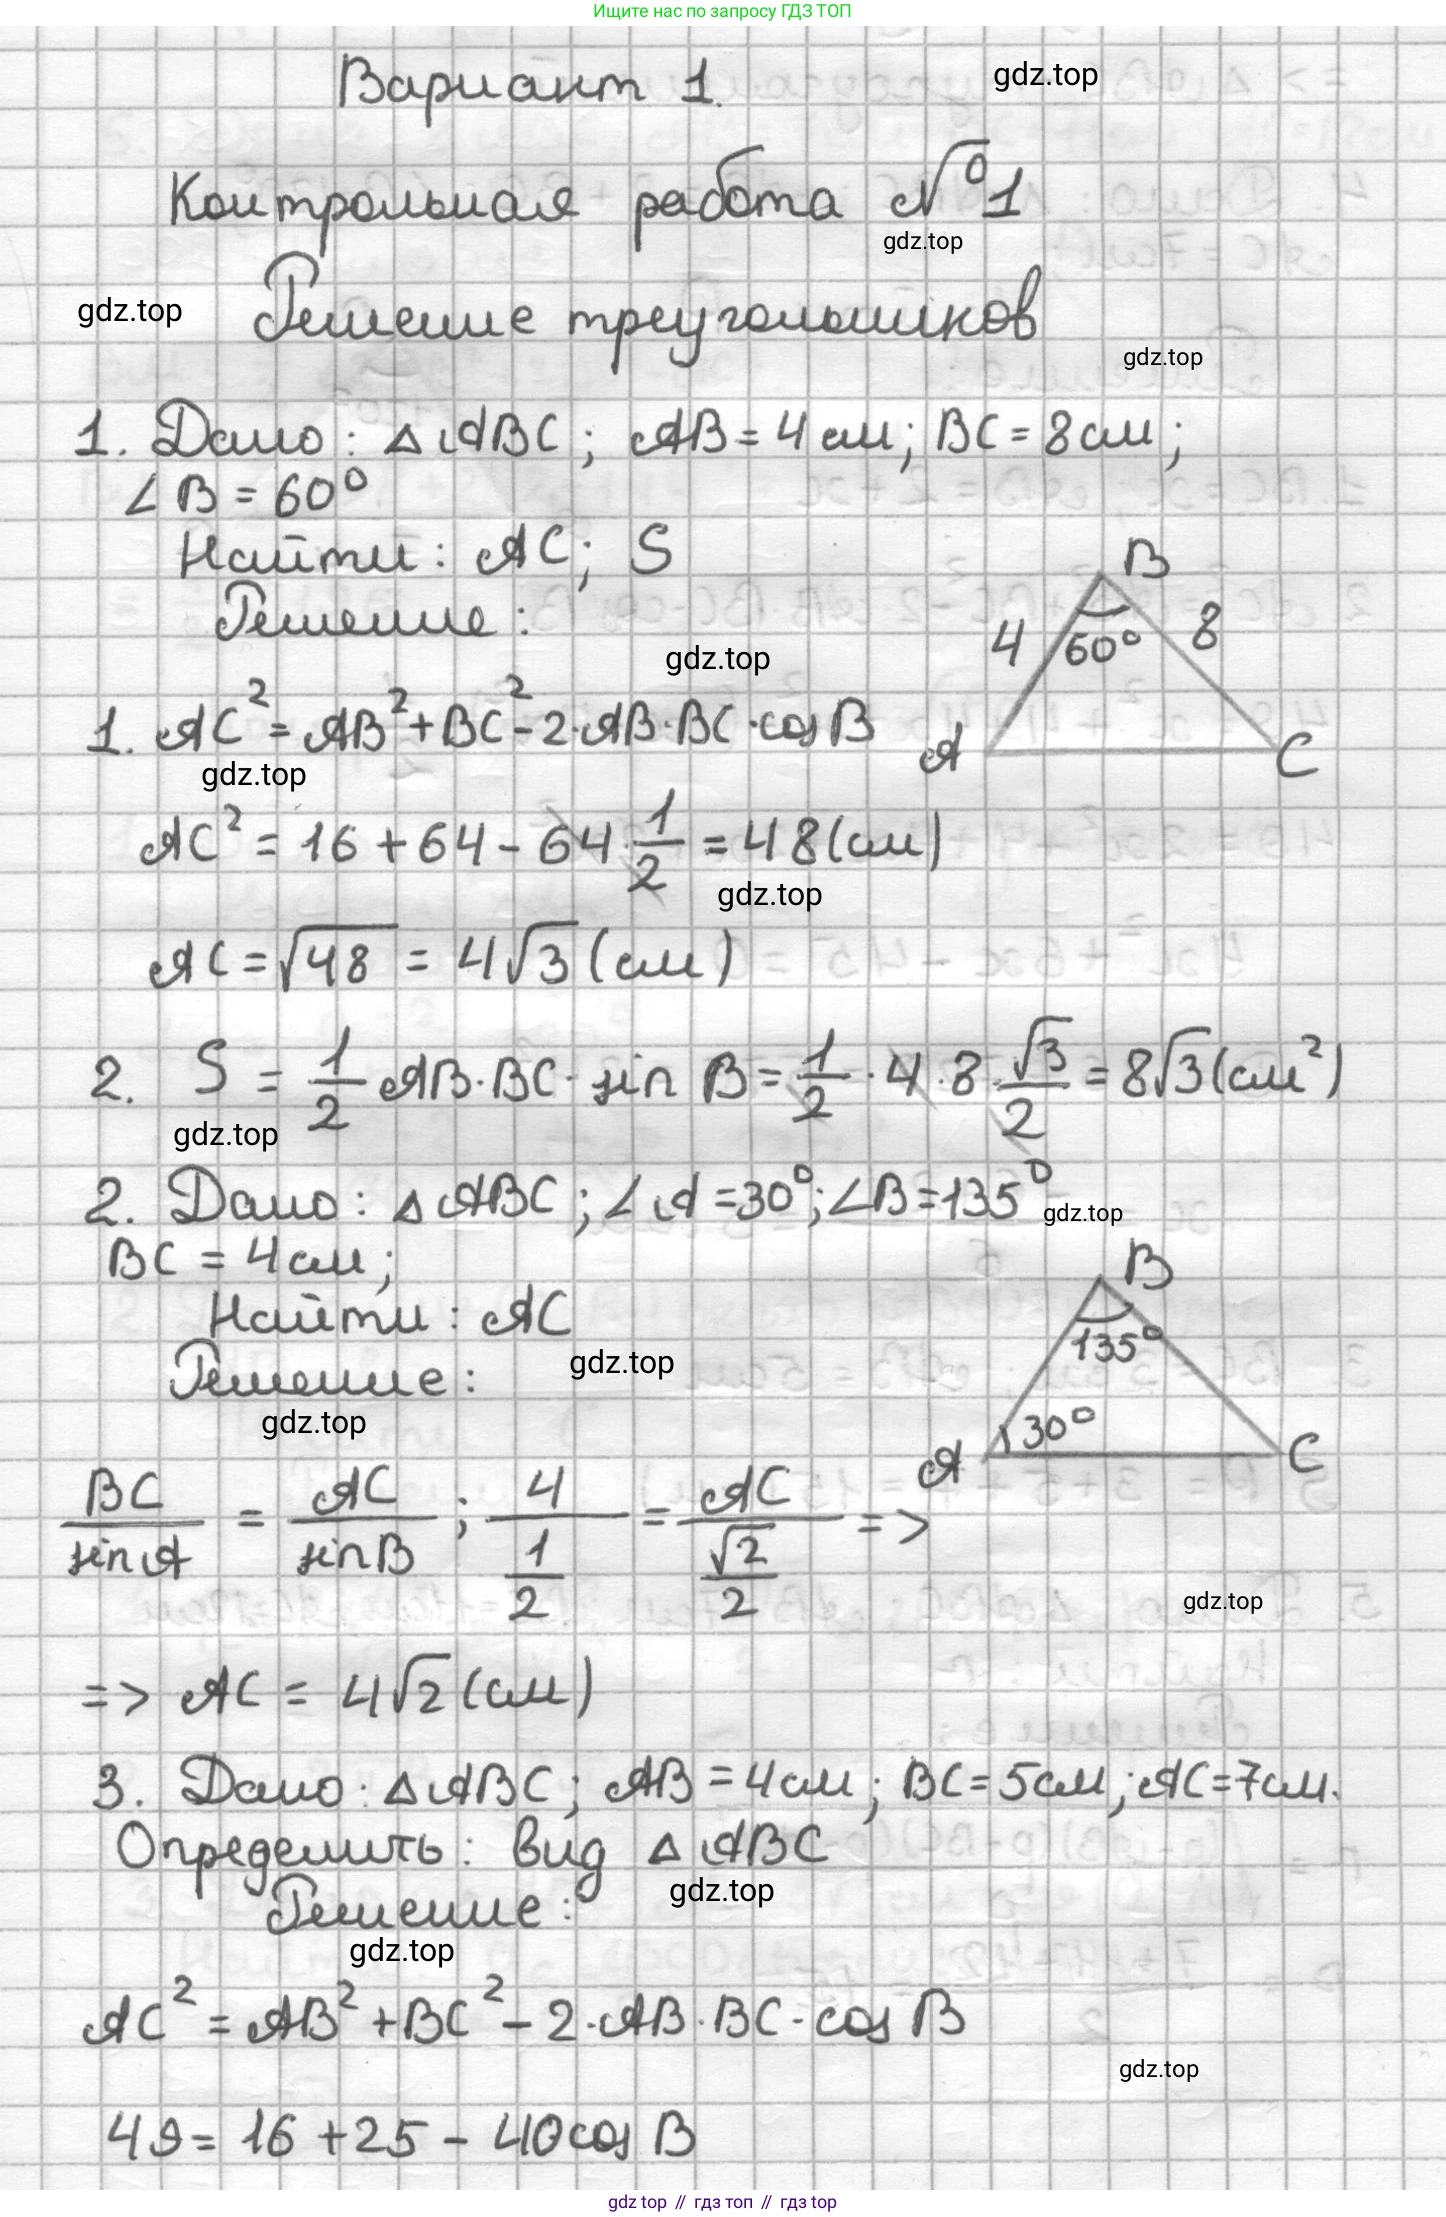 Ищите нас по запросу ГДЗ ТОП
Вариант 1.
gdz.top
Контрольная работа №1
gdz.top
gdz.top
Решение треугольников
gdz.top
1. Дано: △ABC; AB = 4 см; BC = 8 см;
∠B = 60°
Найти: AC; S
Решение:
B
4
60°
8
A
C
gdz.top
1. AC² = AB² + BC² - 2·AB·BC·cos B
gdz.top
AC² = 16 + 64 - 64·1/2 = 48 (см)
gdz.top
AC = √48 = 4√3 (см)
2. S = 1/2 AB·BC·sin B = 1/2·4·8·√3/2 = 8√3 (см²)
gdz.top
2. Дано: △ABC; ∠A = 30°; ∠B = 135°
gdz.top
BC = 4 см;
Найти: AC
Решение:
gdz.top
gdz.top
B
135°
30°
A
C
BC/sin A = AC/sin B; 4/(1/2) = AC/(√2/2) =>
gdz.top
=> AC = 4√2 (см)
3. Дано: △ABC; AB = 4 см; BC = 5 см; AC = 7 см.
Определить: вид △ABC
gdz.top
Решение:
gdz.top
AC² = AB² + BC² - 2·AB·BC·cos B
gdz.top
49 = 16 + 25 - 40 cos B
gdz top // гдз топ // гдз top